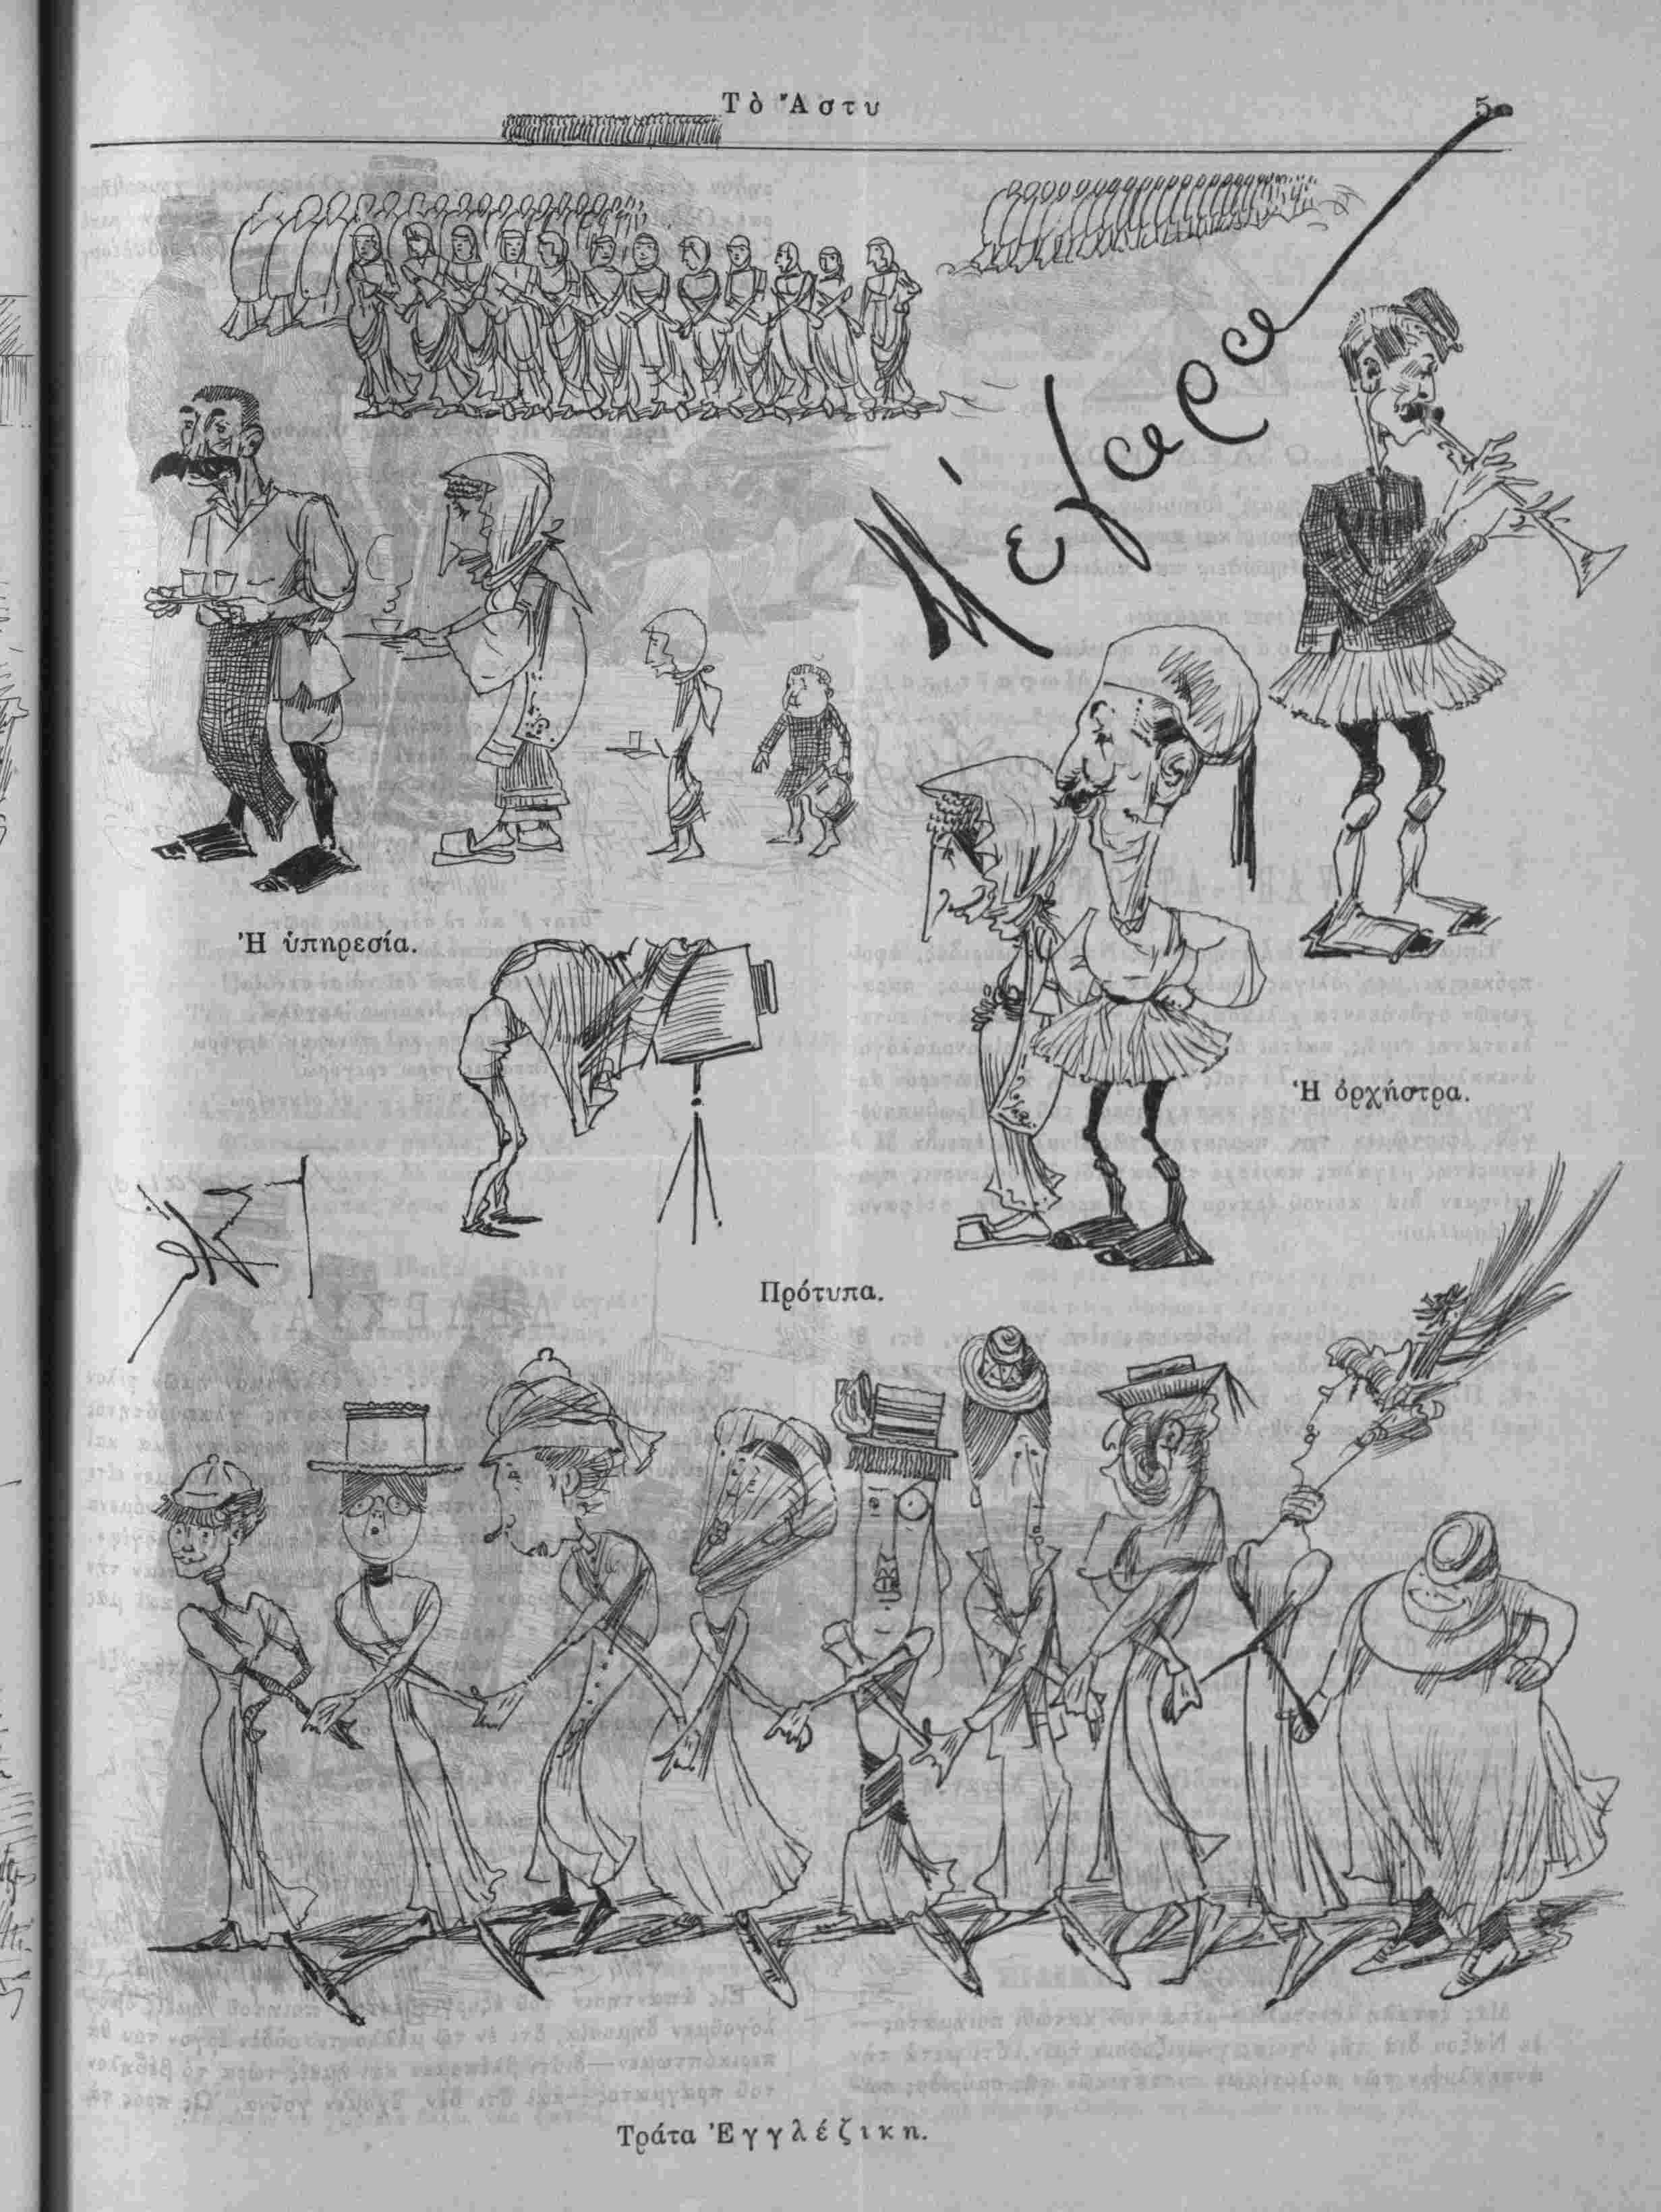 Τὸ Ἄστυ
5
Μέγαρα
Ἡ ὑπηρεσία.
Ἡ ὀρχήστρα.
Πρότυπα.
Τράτα Ἐγγλέζικη.